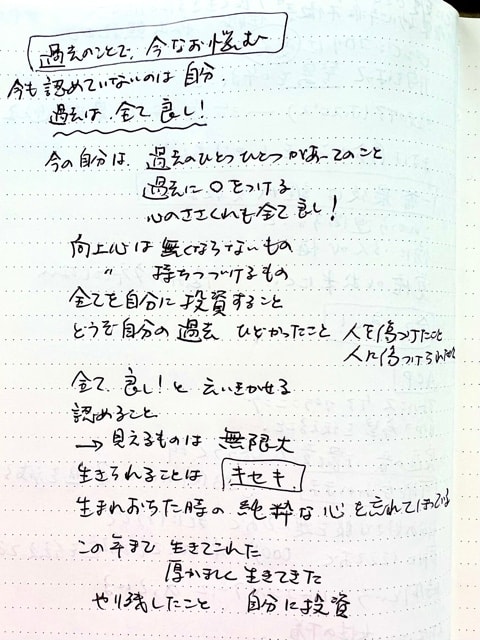 過去のことで、今なお悩む
今も認めていないのは 自分
過去は 全て 良し!
今の自分は 過去のひとつひとつがあってのこと
過去に○をつける
心のささくれも全て良し!
向上心は 無くならないもの
〃 持ちつづけるもの
全てを自分に投資すること
どうぞ自分の過去 ひどかったこと 人を傷つけたこと
人に傷つけられたこと
全て 良し!と 云いきかせる
認めること
→ 見えるものは 無限大
生きられることは キセキ
生まれおちた時の 純粋な心を忘れてしまっている
この年まで 生きてこれた
厚かましく 生きてきた
やり残したこと 自分に投資